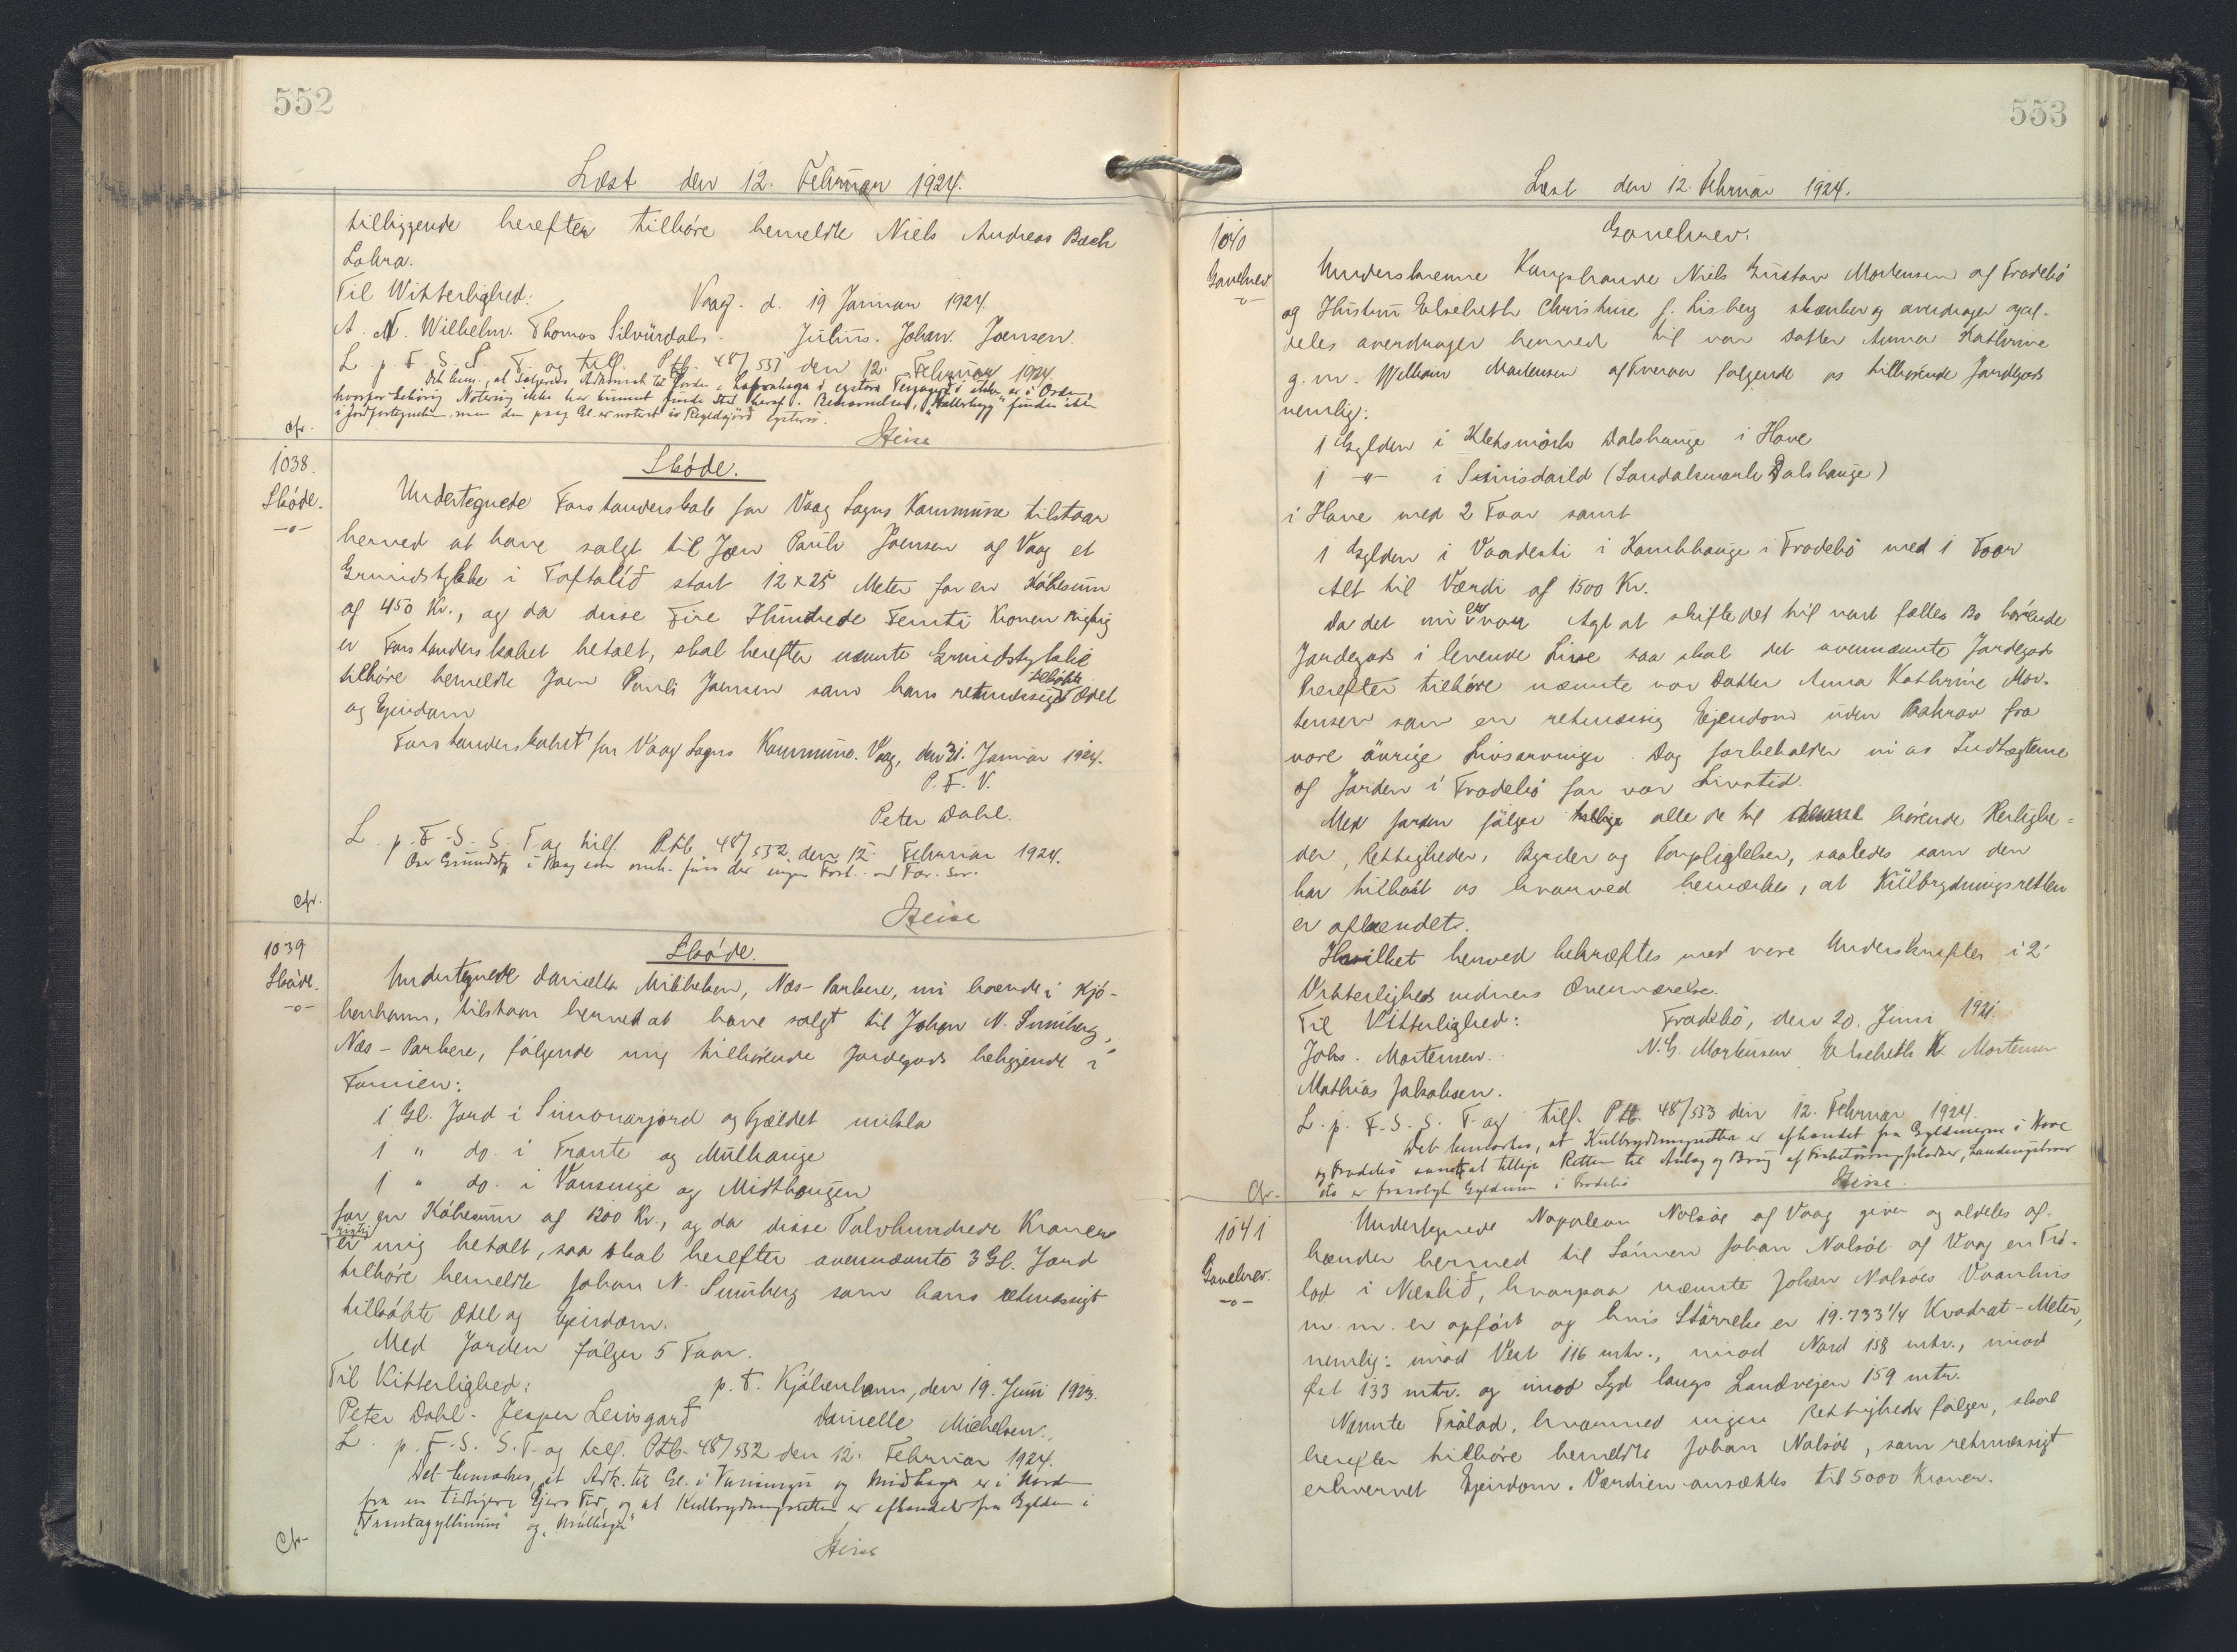 552
Læst den 12. Februar 1924.
tilliggende herefter tilhøre bemeldte Niels Andreas Bech
Lohra.
Til Vitterlighed: Vaag. d. 19 Januar 1924.
A. N. Wilhelm. Thomas Silvurdals. Julius. Johan. Joensen.
L. p. F. S. S. T. og tilf. Ptb. 48/531 den 12. Februar 1924.
Det bem., at Sælgerens Adkomst til Jorden i
hvorfor behörig Notering ikke har kunnet finde Sted heraf. Benævnelsen, finder ikke
i Jordfortegnelsen, men den paag. Gl. er noteret
cfr. Heise
1038.
Sköde.
-o-
Sköde.
Undertegnede Forstanderskab for Vaag Sogns Kommune tilstaar
herved at have solgt til Joen Pauli Joensen af Vaag et
Grundstykke i Toftalíð stort 12 x 25 Meter for en Köbesum
af 450 Kr., og da disse Fire Hundrede Femti Kroner rigtig
er Forstanderskabet betalt, skal herefter nævnte Grundstykke
tilhöre bemeldte Joen Pauli Joensen som hans retmæssigt tilköbte Odel
og Ejendom
Forstanderskabet for Vaag Sogns Kommune. Vaag, den 31. Januar 1924.
P. F. V.
Peter Dahl.
L. p. F. S. S. T. og tilf. Ptb. 48/532 den 12. Februar 1924.
Over Grundst. i Vaag som omh. finds der ingen Fort. ved Fær. Sor.
cfr. Heise
1039
Sköde.
-o-
Sköde.
Undertegnede Danielle Mikkelsen, Næs - Porkere, nu boende i Kjö-
benhavn, tilstaar herved at have solgt til Johan N. Sumberg,
Næs - Porkere, fölgende mig tilhörende Jordegods beliggende i
Famien:
1 Gl. Jord i Simonarjord og Fjældet mikla
1 " do. i Trante og Mülhauge
1 " do. i Vansinge og Midthaugen
for en Köbesum af 1200 Kr., og da disse Tolvhundrede Kroner
rigtig er mig betalt, saa skal herefter ovennævnte 3 Gl. Jord
tilhöre bemeldte Johan N. Sumberg som hans retmæssigt
tilköbte Odel og Ejendom.
Med Jorden fölger 5 Faar.
Til Vitterlighed: p. t. Kjöbenhavn, den 19. Juni 1923.
Peter Dahl. Jesper Leivsgarð Danielle Michelsen.
L. p. F. S. S. T. og tilf. Ptb. 48/532 den 12. Februar 1924.
Det bemærkes, at Adk. til Gl. i og Miðhaga er i Orden
fra en tidligere Ejers Tid, og at Kulbrydningsretten er afhændet fra Gylden i
"Trantagyllinum" og "Mülhaga"
Cfr. Heise
553
Læst den 12. Februar 1924.
1040
Gavebrev
-o-
Gavebrev.
Underskrevne Kongsbonde Niels Gustav Mortensen af Frodebö
og Hustru Elsebeth Christine f. Lisberg skænker og overdrager og al-
deles overdrager herved til vor Datter Anna Kathrine
g. m. William Mortensen af Tveraa følgende os tilhørende Jordegods
nemlig:
1 Gylden i Kleksmörk Dalshauge i Hove
1 -"- i (Sandalsmark Dalshauge)
i Hove med 2 Faar samt
1 Gylden i Vaadesti i Kambhauge i Frodebö med 1 Faar
Alt til Værdi af 1500 Kr.
Da det nu er vor Agt at skifte det til vort fælles Bo hörende
Jordegods i levende Live saa skal det ovennævnte Jordegods
herefter tilhöre nævnte vor Datter Anna Kathrine Mor-
tensen som en retmæssig Ejendom uden Paakrav fra
vore övrige Livsarvinger. Dog forbeholder vi os Indtægterne
af Jorden i Frodebö for vor Livstid.
Med Jorden fölger tillige alle de til hörende Herlighe-
der, Rettigheder, Byrder og Forpligtelser, saaledes som den
har tilhört os hvorved bemærkes, at Külbrydningsretten
er afhændet.
Hvilket herved bekræftes med vore Underskrifter i 2
Vitterligheds vidners Overværelse.
Til Vitterlighed: Frodebö, den 20. Juni 1921.
Johs. Mortensen. N. G. Mortensen Elsebeth K. Mortensen
Mathias Jakobsen.
L. p. F. S. S. T. og tilf. Ptb. 48/533 den 12. Februar 1924.
Det bemærkes, at Kulbrydningsretten er afhændet fra Gyldenerne i Hove
og Frodebö samt at tillige Retten til Anlæg og Brug af Fisketörringspladser, Landingsbroer
etc er frasolgt Gyldenen i Frodebö
Cfr. Heise.
1041
Gavebrev.
-o-
Undertegnede Napoleon Nolsöe af Vaag giver og aldeles af-
hænder herved til Sönnen Johan Nolsöe af Vaag en Trö-
lod i Neslíð, hvorpaa nævnte Johan Nolsöes Vaanhus
m. m. er opfört og hvis Störrelse er 19.733 1/4 Kvadrat-Meter,
nemlig: imod Vest 116 mtr., imod Nord 158 mtr., imod
Øst 133 mtr. og imod Syd langs Landvejen 159 mtr.
Nævnte Trölod, hvormed ingen Rettigheder fölger, skal
herefter tilhöre bemeldte Johan Nolsöe, som retmæssigt
erhvervet Ejendom. Værdien ansættes til 5000 Kroner.